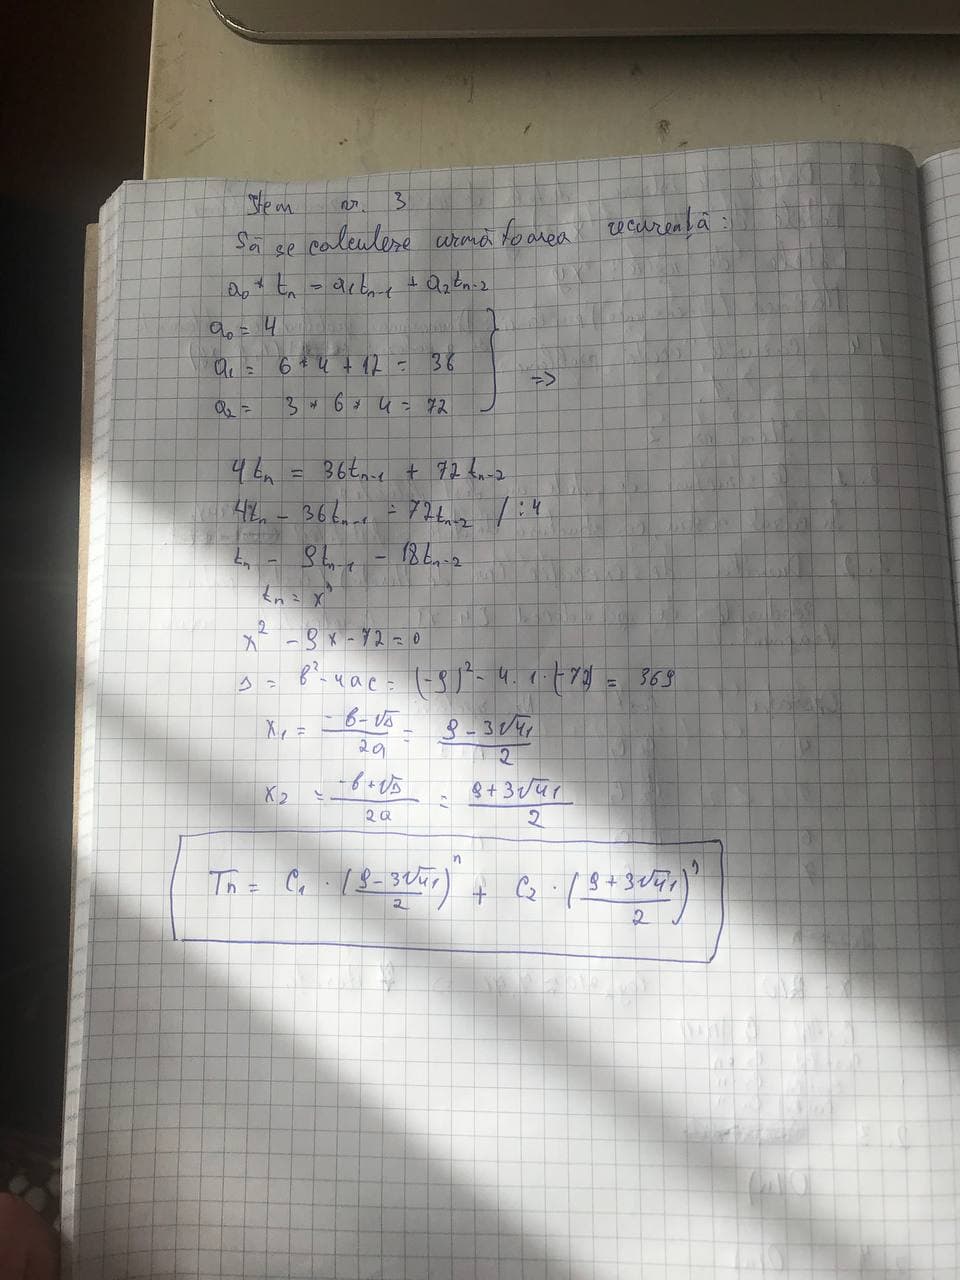 Item nr. 3
Să se calculeze următoarea recurență:
a₀ * tₙ = a₁tₙ₋₁ + a₂tₙ₋₂
a₀ = 4
a₁ = 6 * 4 + 12 = 36
a₂ = 3 * 6 * 4 = 72
=>
4tₙ = 36tₙ₋₁ + 72tₙ₋₂
4tₙ - 36tₙ₋₁ = 72tₙ₋₂ / : 4
tₙ - 9tₙ₋₁ - 18tₙ₋₂
tₙ = xⁿ
x² - 9x - 72 = 0
Δ = b² - 4ac = (-9)² - 4 · 1 · (-72) = 369
x₁ = (-b - √Δ)/2a = (9 - 3√41)/2
x₂ = (-b + √Δ)/2a = (9 + 3√41)/2
Tₙ = C₁ · ((9 - 3√41)/2)ⁿ + C₂ · ((9 + 3√41)/2)ⁿ